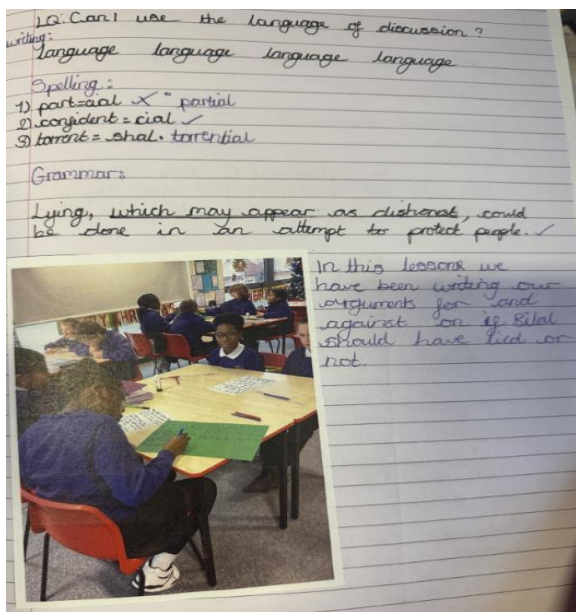 LQ: Can I use the language of discussion?
writing:
language language language language
Spelling:
1) part=cial X • partial
2) confident = cial ✓
3) torrent = shal • torrential
Grammar:
Lying, which may appear as dishonest, could
be done in an attempt to protect people. ✓
In this lessons we
have been writing our
arguments for and
against on if Bilal
should have lied or
not.